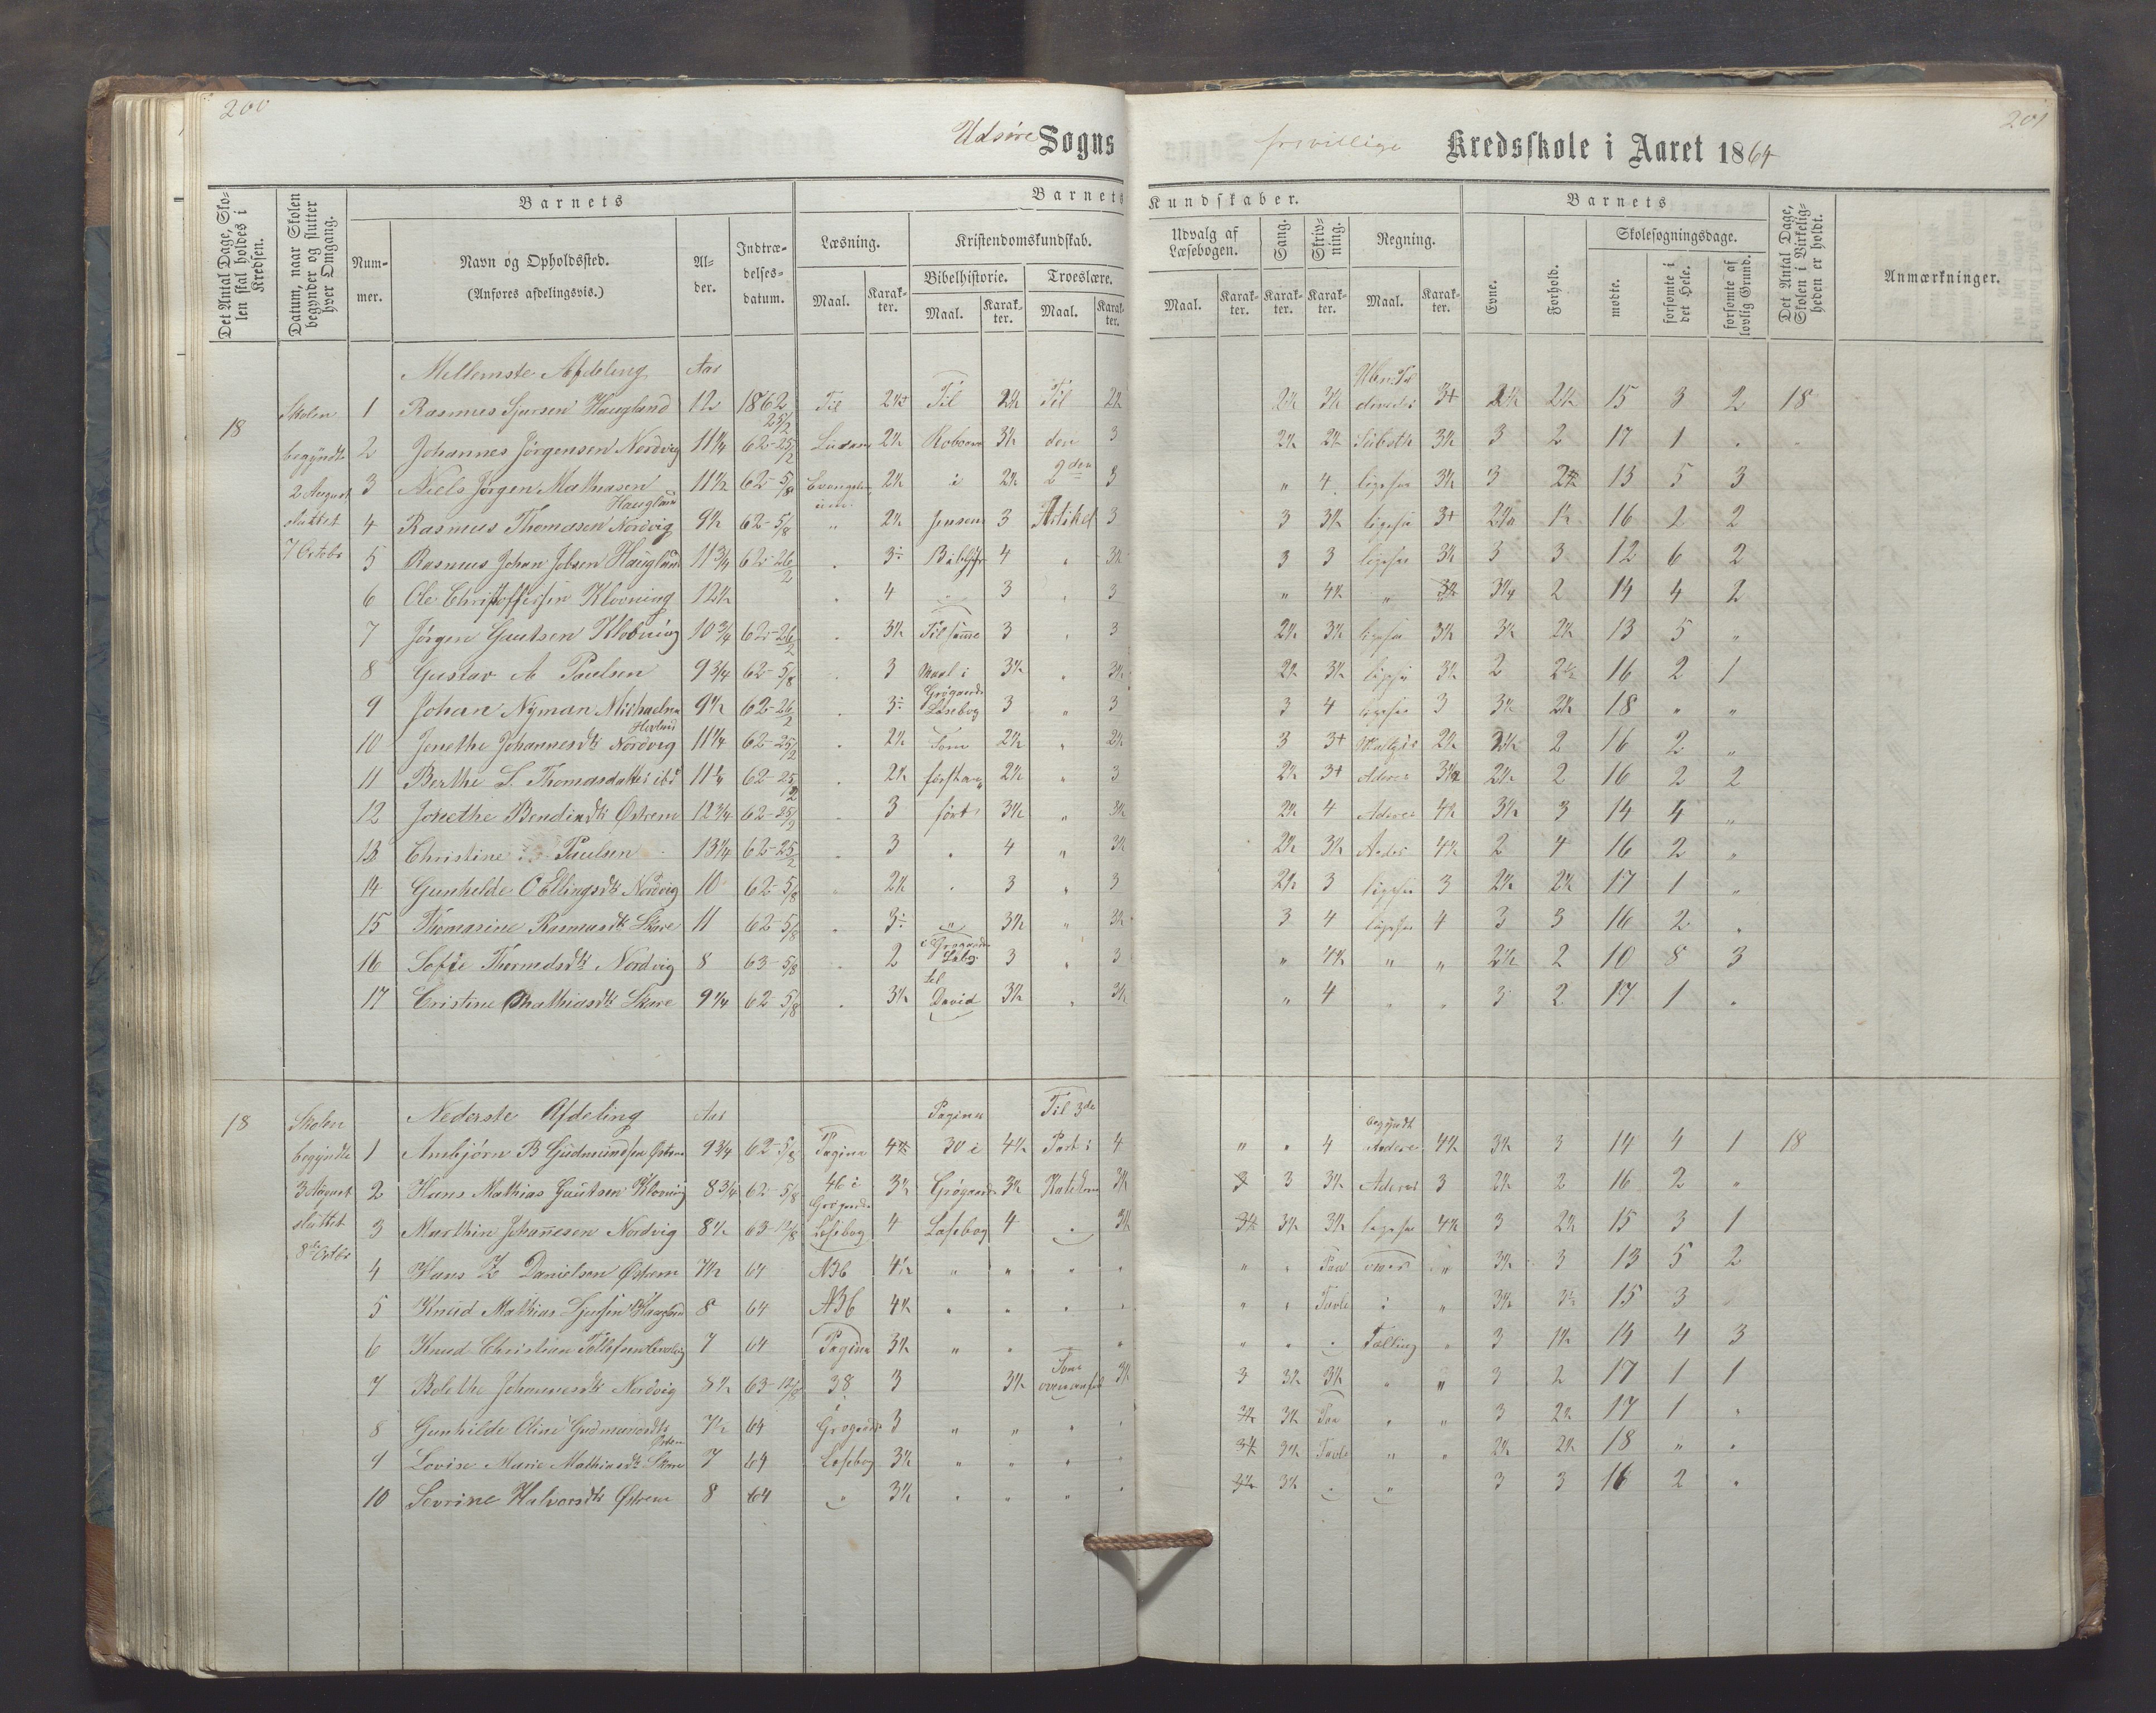 200
201
Udsire Sogns frivillige Kredsskole i Aaret 1864
Det Antal Dage, Skolen skal holdes i Kredsen.
Datum, naar Skolen begynder og slutter hver Omgang.
Barnets
Nummer.
Navn og Opholdssted.
(Anføres afdelingsvis.)
Alder.
Indtrædelsesdatum.
Barnets Kundskaber.
Læsning.
Maal.
Karakter.
Kristendomskundskab.
Bibelhistorie.
Maal.
Karakter.
Troeslære.
Maal.
Karakter.
Udvalg af Læsebogen.
Maal.
Karakter.
Sang.
Karakter.
Skrivning.
Karakter.
Regning.
Maal.
Karakter.
Barnets
Evne.
Forhold.
Skolesøgningsdage.
mødte.
forsømte i det Hele.
forsømte af lovlig Grund.
Det Antal Dage, Skolen i Virkeligheden er holdt.
Anmærkninger.
Mellemste Afdeling Aar
18 Skolen begyndte 2 August sluttet 7 Octobr
1 Rasmus Sjursen Haugland 12 1862 25/2 Til 2½+ Til 2½ Til 2½ 2½ 3½ 3+ 2½ 15 3 2 18
2 Johannes Jørgensen Nordvig 11¼ 62-25/2 2½ 3½ den 3 2½ 2½ Subtr 3½ 3 2 17 1 "
3 Niels Jørgen Mathiasen Haugland 11½ 62-5/8 Evangelium 2½ i 2½ 2den 3 " 4 ligesaa 3½ 3 13 5 3
4 Rasmus Thomasen Nordvig 9½ 62-5/8 " 2½ Jensens 3 Artikel 3 3 3½ ligesaa 3+ 1½ 16 2 2
5 Rasmus Johan Jobsen Haugland 11¾ 62-26/2 " 3÷ Bibelhist 4 " 3½ 3 3 ligesaa 3½ 3 3 12 6 2
6 Ole Christoffersen Klovning 12½ " 4 3 " 3 " 4½ " 2 14 4 2
7 Jørgen Gautsen Klovning 10¾ 62-26/2 " 3½ Til samme 3 " 3 2½ 3½ ligesaa 3½ 3½ 2½ 13 5 "
8 Gustav A Paulsen 9¾ 62-5/8 " 3 Maal i 3½ " 3½ 2½ 3½ ligesaa 3½ 2 2½ 16 2 1
9 Johan Nyman Michaelsen 9½ 62-26/2 " 3÷ Grøgaards Læsebog 3 " 3 3 4 ligesaa 3 3½ 2½ 18 " "
10 Jenethe Johannesdtr Nordvig 11¼ 62-25/2 " 2½ Som 2½ " 2½ 3 3+ 2½ 2 16 2 "
11 Berthe S. Thomasdatter ibid 11¼ 62-25/2 " 2½ 2½ " 3 2½ 3+ Aderer 2½ 2 16 2 2
12 Jonethe Bendiksdtr Østrem 12¾ 62-25/2 " 3 ført 3½ " 3½ 2½ 4 Aderer 4½ 3½ 3 14 4 "
13 Christine Paulsen 13¼ 62-25/2 " 3 " 4 " 3½ 2½ 3½ 4½ 2 4 16 2 "
14 Gunhilde O Ellingsdtr Nordvig 10 62-5/8 " 2½ " 3 " 3 2½ 3 ligesaa 3 2½ 2½ 17 1 "
15 Thomasine Rasmusdtr Skare 11 62-5/8 " 3÷ " 3½ " 3½ 3 4 ligesaa 4 3 3 16 2 "
16 Sofie Thormodsdtr Nordvig 8 63-5/8 " 2 i Grøgaards Læsbg 3 " 3 " 4½ " " 2½ 2 10 8 3
17 Cristine Mathiasdtr Skare 9¼ 62-5/8 " 3½ til David 3½ " 3½ " 4 " " 3 2 17 1 "
Nederste Afdeling Aar
18 Skolen begyndte 3 August sluttet 8de Octbr
1 Ambjørn B Gudmundsen Østrem 9¾ 62-5/8 Pagina Pagina 30 i 4½ Til 3de Part i 4 " " 4 begyndt Aderer 4½ 3½ 3 14 4 1 18
2 Hans Mathias Gautsen Klovning 8¾ 62-5/8 46 i Grøgaards 3½ Grøgaards 3½ Katekism 3½ 3 3½ Aderer 3 2½ 2 16 2 "
3 Marthin Johanesen Nordvig 8½ 63-12/8 Læsebog 4 Læsebog 4 " 3½ 3½ 3½ 3½ ligesaa 4½ 3 2½ 15 3 1
4 Hans Z Danielsen Østrem 7½ 64 ABC 4½ " " " " " " Paa øver " 3½ 3 13 5 2
5 Knud Mathias Sjursen Haugland 8 64 ABC 4½ " " " " " " Tavle i " 3½ 15 3
6 Knud Christian Tollefsen Nordvig 7 64 Pagina 3½ " " " " " " " Tælling " 3 1½ 14 4 3
7 Bolethe Johannesdtr Nordvig 8½ 63-12/8 38 3 3½ Som ovenanført 3½ 3 3½ 3½ " " 3 2 17 1 1
8 Gunhilde Oline Gudmundsdtr Østrem 7½ 64 i Grøgaards 3 " " " " 3½ 3½ Paa " " 3 2½ 17 1 "
9 Lovise Marie Mathiasdtr Skare 7 64 Læsebog 3½ " " " " 3½ 3½ Tavle " " 2½ 2½ 18 " "
10 Sevrine Halvorsdtr Østrem 8 64 " 3½ " " " " 3½ 3½ " " 3 3 16 2 "